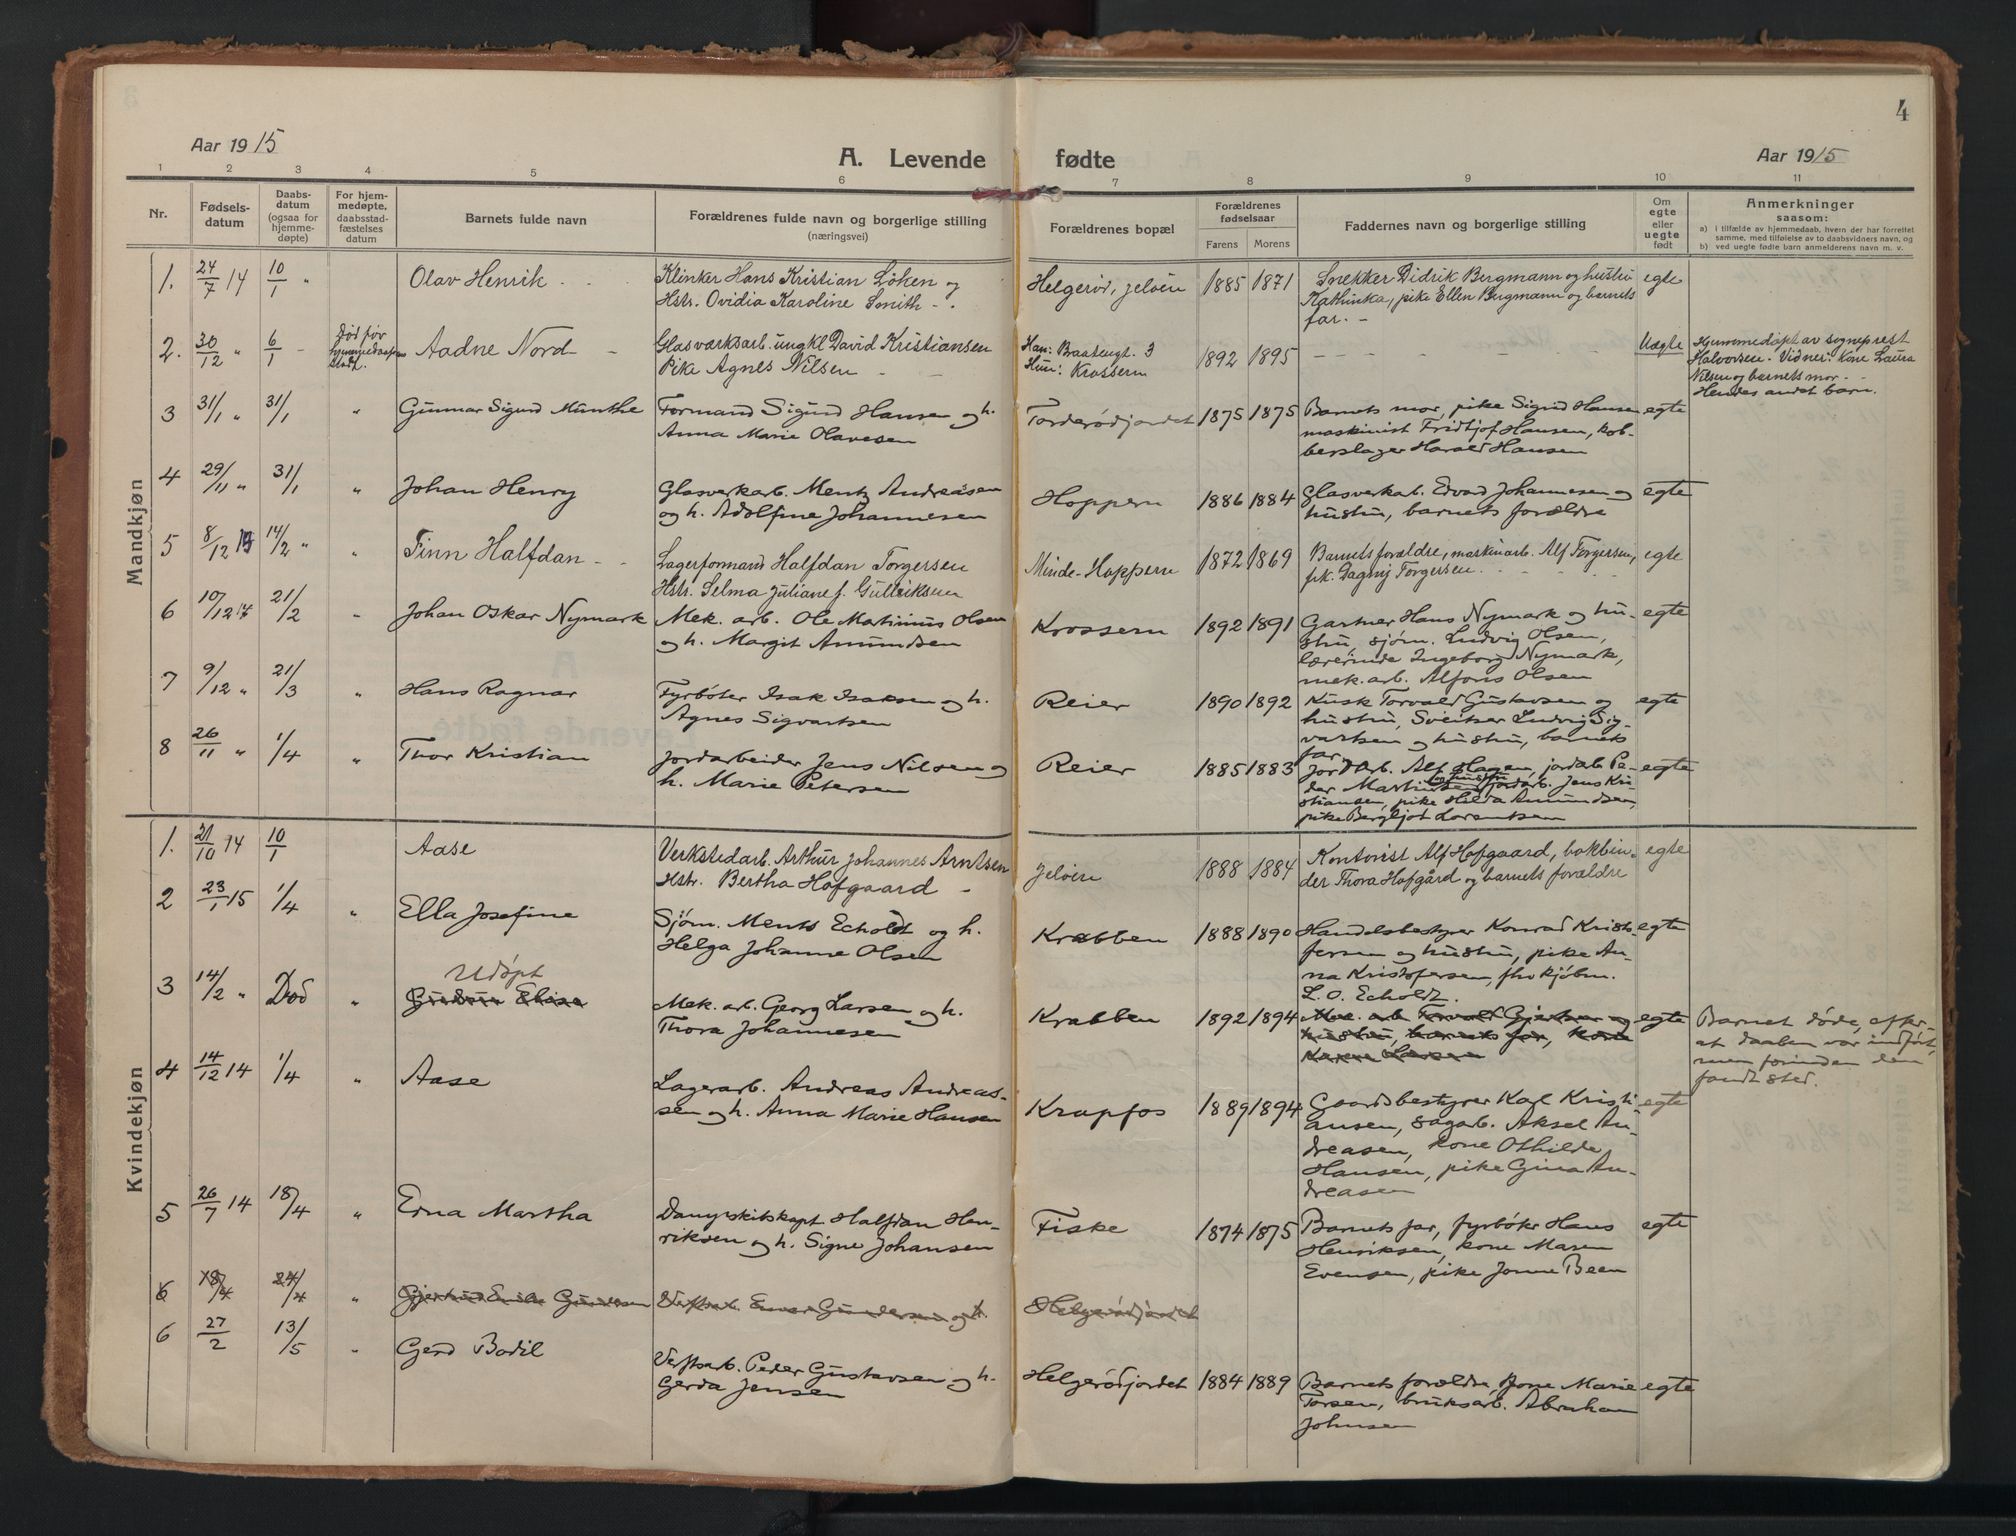 4
Aar 1915
A. Levende fødte
Aar 1915
1 2 3 4 5 6 7 8 9 10 11
Nr.
Fødsels-
datum
Daabs-
datum
(ogsaa for
hjemme-
døpte)
For hjem-
medøpte,
daabsstad-
fæstelses
datum
Barnets fulde navn
Forældrenes fulde navn og borgerlige stilling
(næringsvei)
Forældrenes bopæl
Forældrenes
fødselsaar
Farens Morens
Faddernes navn og borgerlige stilling
Om
egte
eller
uegte
født
Anmerkninger
saasom:
a) i tilfælde av hjemmedaab, hvem der har forrettet
samme, med tilføielse av to daabsvidners navn, og
b) ved uegte fødte barn anmelderens navn m. v.
Mandkjøn
1. 24/7 14 10/1 " Olav Henrik
Klinker Hans Kristian Löken og
Hstr. Ovidia Karoline Smith
Helgerød, Jeløen 1885 1871
Snekker Didrik Bergmann og hustru
Kathinka, pike Ellen Bergmann og barnets
far.
egte
2. 30/12 " 6/1
Död før
hjemmedaapens
stadf.
Aadne Nord
Glasværksarb. ungkl David Kristiansen
Pike Agnes Nilsen
Han: Braatengt. 3
Hun: Krossern
1892 1895
Uegte
Hjemmedøpt av sogneprest
Halvorsen. Vidner: Kone Laura
Nilsen og barnets mor.
Hendes andet barn.
3 31/1 " 31/1 " Gunnar Sigurd Munthe
Formand Sigurd Hansen og h.
Anna Marie Olavesen
Torderødjordet 1875 1875
Barnets mor, pike Sigrid Hansen
maskinist Fridtjof Hansen, kob-
berslager Harald Hansen
egte
4 29/11 " 31/1 " Johan Henry
Glasverkarb. Mentz Andreasen
og h. Adolfine Johannesen
Hoppern 1886 1884
Glasverkarb. Edvard Johannesen og
hustru, barnets forældre
egte
5 8/12 14/2 " " Finn Halfdan
Lagerformand Halfdan Torgersen
Hstr. Selma Juliane f. Gulliksen
Minde-Hoppern 1872 1869
Barnets forældre, maskinarb. Alf Torgersen,
frk. Dagny Torgersen
egte
6 10/12 14 21/2 " Johan Oskar Nymark
Mek. arb. Ole Martinius Olsen
og h. Margit Amundsen
Krossern 1892 1891
Gartner Hans Nymark og hu-
stru, sjøm. Ludvig Olsen,
lærerinde Ingeborg Nymark,
mek. arb. Alfons Olsen
egte
7 9/12 " 21/3 " Hans Ragnar
Fyrbøter Isak Isaksen og h.
Agnes Sigvartsen
Reier 1890 1892
Kusk Torvald Gustavsen og
hustru, Sveitser Ludvig Sig-
vartsen og hustru, barnets
far
egte
8 26/11 " 1/4 " Thor Kristian
Jordarbeider Jens Nilsen og
h. Marie Petersen
Reier 1885 1883
Jordarb. Alf Hagen, jordarb. Pe-
der Martinsen og hustru, jordarb. Jens Kri-
stiansen, pike Hilda Amundsen,
pike Bergljot Lorentsen
egte
Kvindekjøn
1. 21/10 14 10/1 Aase
Verkstedarb. Arthur Johannes Arntsen
Hstr. Bertha Hofgaard
Jeløen 1888 1884
Kontorist Alf Hofgaard, bokbin-
der Thora Hofgård og barnets forældre
egte
2 23/1 15 1/4 " Ella Josefine
Sjøm. Ments Echoldt og h.
Helga Johanne Olsen
Krabben 1888 1890
Handelsbestyrer Konrad Kristo-
fersen og hustru, pike An-
na Kristofersen, fhv kjøbm.
L. O. Echoldt.
egte
3 14/2 " Død " Udøpt
Gudrun Elise
Mek. arb. Georg Larsen og h.
Thora Johannesen
Krabben 1892 1894
Mek. arb. Torvald Gjertsen og
hustru, barnets far, kone
Karen Larsen
egte
Barnet døde, efter-
at daaben var indført,
men forinden den
fandt sted.
4 14/12 14 1/4 " Aase
Lagerarb. Andreas Andreas-
sen og h. Anna Marie Hansen
Krapfos 1889 1894
Gaardsbestyrer Karl Kristi-
ansen, sagarb. Aksel An-
dreasen, kone Othilde
Hansen, pike Gina An-
dreasen
egte
5 26/7 14 18/4 " Erna Martha
Dampskibskapt Halfdan Hen-
riksen og h. Signe Johansen
Fiske 1874 1875
Barnets far, fyrbøter Hans
Henriksen, kone Maren
Evensen, pike Jonne Been
egte
6 18/4 24/4 " Gundersen
Verftsarb. Einar Gundersen og h.
Helgerødjordet
6 27/2 13/5 " Gerd Bodil
Verftsarb. Peder Gustavsen og h.
Gerda Jensen
Helgerødjordet 1884 1889
Barnets forældre, kone Marie
Torsen, bruksarb. Abraham
Johnsen
egte